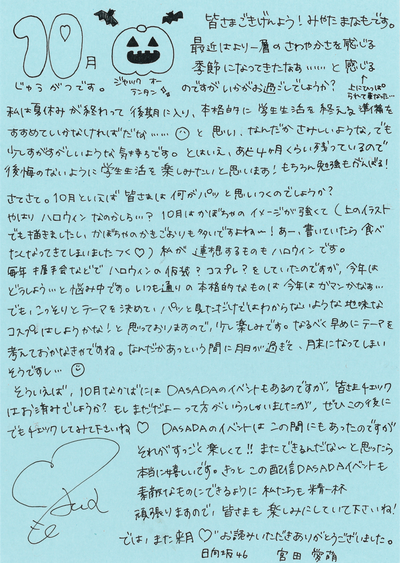 10月
じゅうがつです。
ジャック オー ランタン
皆さまごきげんよう！みやたまなもです。
最近はより一層のさわやかさを感じる
季節になってきたなぁ……と感じる
のですがいかがお過ごしでしょうか？
↑上にひっぱられて重なった…
私は夏休みが終わって後期に入り、本格的に学生生活を終える準備を
すすめていかなければだな……と思い、なんだかさみしいような、でも
少しすがすがしいような気持ちです。とはいえ、あと4ヶ月くらい残っているので
後悔のないように学生生活を楽しみたいと思います！もちろん勉強もがんばる！
さてさて。10月といえば皆さまは何がパッと思いつくのでしょうか？
やはりハロウィンなのかしら…？10月はかぼちゃのイメージが強くて（上のイラスト
でも描きましたし、かぼちゃのかきごおりも多いですよねー！あー、書いていたら食べ
たくなってきてしまいましたつ♡）私が連想するものもハロウィンです。
毎年握手会などでハロウィンの仮装？コスプレ？をしていたのですが、今年は
どうしよう…と悩み中です。いつも通りの本格的なものは今年はガマンかなぁ…
でも、こっそりとテーマを決めて、パッと見ただけではわからないような地味な
コスプレはしようかな！と思っておりますので、少し楽しみです。なるべく早めにテーマを
考えておかなきゃですね。なんだかあっという間に月日が過ぎて、月末になってしまい
そうですし…
そういえば、10月なかばにはDASADAのイベントもあるのですが、皆さまチェック
はお済みでしょうか？もしまだだよーって方がいらっしゃいましたが、ぜひこの後に
でもチェックしてみて下さいね♡ DASADAのイベントはこの間にもあったのですが
それがすっごく楽しくて！！またできるんだない！と思ったら
本当に嬉しいです。きっとこの配信DASADAイベントも
素敵なものにできるように私たちも精一杯
頑張りますので、皆さまも楽しみにしていて下さいね！
では、また来月♡お読みいただきありがとうございました。
日向坂46 宮田愛萌